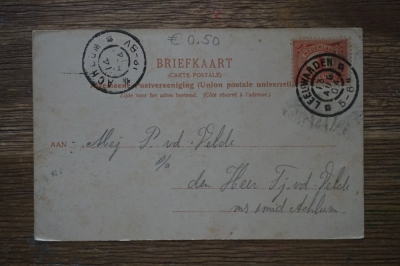 € 0.50
BRIEFKAART
(CARTE POSTALE)
Algemeene Postvereeniging (Union postale universelle)
Zijde voor het adres bestemd. (Côté réservé à l'adresse.)
ACHLUM
LEEUWARDEN
5-6
AAN
Mej P. vd. Velde
p/o
den Heer Tj. vd. Velde
mr smid Achlum